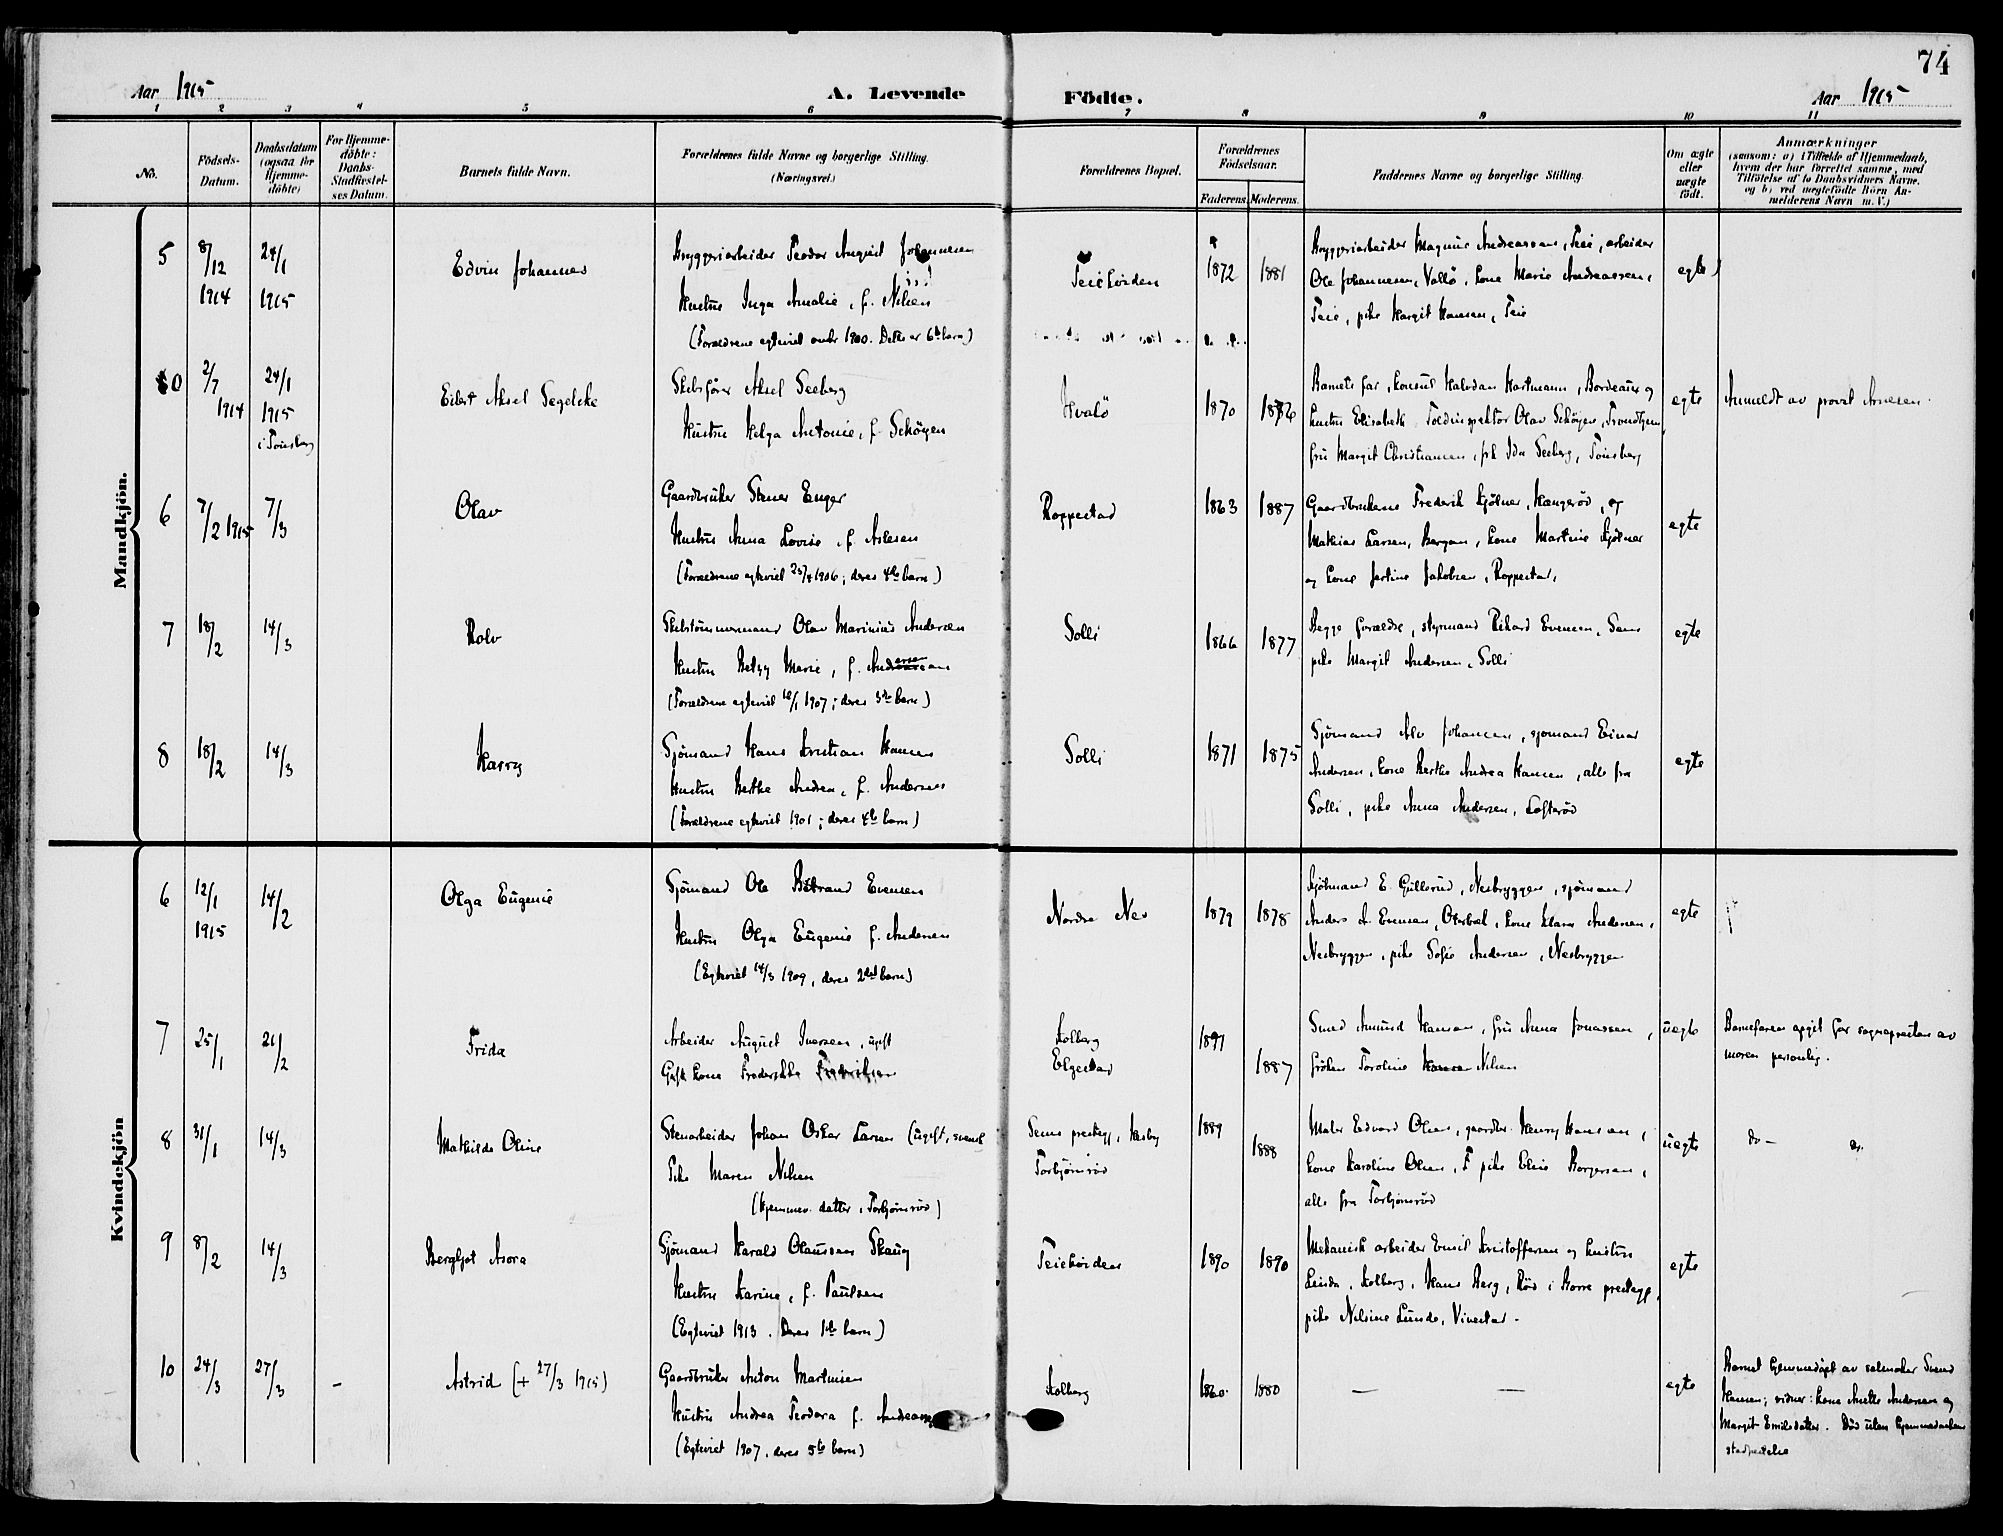 74
Aar 1915 A. Levende Födte. Aar 1915
1 2 3 4 5 6 7 8 9 10 11
No.
Födsels-Datum.
Daabsdatum (ogsaa for Hjemme-döbte)
For Hjemme-döbte: Daabs-Stadfæstel-ses Datum.
Barnets fulde Navn.
Forældrenes fulde Navne og borgerlige Stilling.
(Næringsvei.)
Forældrenes Bopæl.
Forældrenes Födselsaar.
Faderens. Moderens.
Faddernes Navne og borgerlige Stilling.
Om ægte eller uægte födt.
Anmærkninger
(saasom: a) i Tilfælde af Hjemmedaab,
hvem der har forrettet samme, med
Tilföielse af to Daabsvidners Navne,
og b) ved uægtefödte Börn An-
melderens Navn m. V.)
Mandkjön.
5 8/12 1914 24/1 1915 Edvin Johannes
Bryggeriarbeider Teodor August Johannesen
Hustru Inga Amalie, f. Nilsen
(Forældrene egteviet 1900. Dette er 6te barn)
Teiehöiden 1872 1881
Bryggeriarbeider Magnus Andreassen, Teie, arbeider
Ole Johannesen, Vallö, kone Marie Andreassen,
Teie, pike Margit Hansen, Teie
egte
2/7 1914 24/1 1915 i Tönsberg
Eilert Aksel Segelcke
Skibsförer Aksel Seeberg
Hustru Helga Antonie, f. Schöyen
Hvalö 1870
Barnets far, konsul Halvdan Hartmann, Bordeaux og
hustru Elisabeth Toldinspektör Olav Schöyen, Trondhjem,
fru Margit Christiansen, frk Ida Seeberg, Tönsberg
egte
Anmeldt av provst Arnesen.
6 7/2 1915 7/3 Olav
Gaardbruker Stener Enger
Hustru Anna Lovise, f. Aslesen
(Forældrene egteviet 1906; deres 4de barn)
Roppestad 1863 1887
Gaardbrukerne Frederik Kjölner, Hengeröd, og
Mathias Larsen, Bergan, kone Martine Kjölner
og kone Jakobsen, Roppestad,
egte
7 18/2 14/3 Rolv
Skibstömmermand Olav Marinius Andersen
Hustru Betzy Marie, f. Andersen
(Forældrene egteviet 1907; deres 3de barn)
Solli 1866 1877
Begge forældre, styrmand Rikard Evensen, Sem
pike Margit Andersen, Solli
egte
8 18/2 14/3 Harry
Sjömand Hans Kristian Hansen
Hustru Berthe Andrea, f. Andersen
(Forældrene egteviet 1901; deres 4de barn)
Solli 1871 1875
Sjömand Alv Johansen, sjömand Einar
Andersen, kone Berthe Andrea Hansen, alle fra
Solli, pike Anna Andersen, Lofteröd
egte
Kvindekjön
6 12/1 1915 14/2 Olga Eugenie
Sjömand Ole Evensen
Hustru Olga Eugenie f. Andersen
(Egteviet 14/3 1909, deres 2det barn)
Nordre Nes 1879 1878
E. Gullerud, Nesbryggen, sjömand
Anders A. Evensen, Oterbæk, kone Klara Andersen,
Nesbryggen, pike Sofie Andersen, Nesbryggen
egte
7 25/1 21/2 Frida
Arbeider August Iversen, ugift
Gift kone Frederikke
Kolberg
Elgestad
1887
Smed Amund Hansen, fru Anna Jonassen,
fröken Toroline Nilsen
uegte
Barnefaren opgit for sognepresten av
moren personlig.
8 31/1 14/3 Mathilde Oline
Stenarbeider Johan Oskar Larsen (ugift, svensk
Pike Maren Nilsen
(hjemmev. datter, Torbjörnröd)
Sems prestegj., Husby
Torbjörnröd
1889 1888
Maler Edvard Olsen, gaardbr. Henry Hansen,
kone Karoline Olsen, pike Elise Borgersen,
alle fra Torbjörnröd
uegte
do - do.
9 8/2 14/3 Bergljot Asora
Sjömand Harald Olaussen Skaug
Hustru Karine, f. Paulsen
(Egteviet 1913. Deres 1ste barn)
Teiehöiden 1890 1890
Mekanisk arbeider Emil Kristoffersen og hustru
Linda, Kolberg, Hans Berg, Röd i Borre prestegj.,
pike Nilsine Lunde, Vivestad.
egte
10 24/3 27/3 - Astrid (+ 27/3 1915)
Gaardbruker Anton Martinsen
Hustru Andrea Teodora f.
(Egteviet 1907, deres 5te barn)
Kolberg 1880
- -
egte
Barnet hjemmedöpt av salmaker Svend
Hansen; vidner: kone Anette Andersen og
Margit Emilsdatter. Död uten hjemmedaabens
stadfæstelse